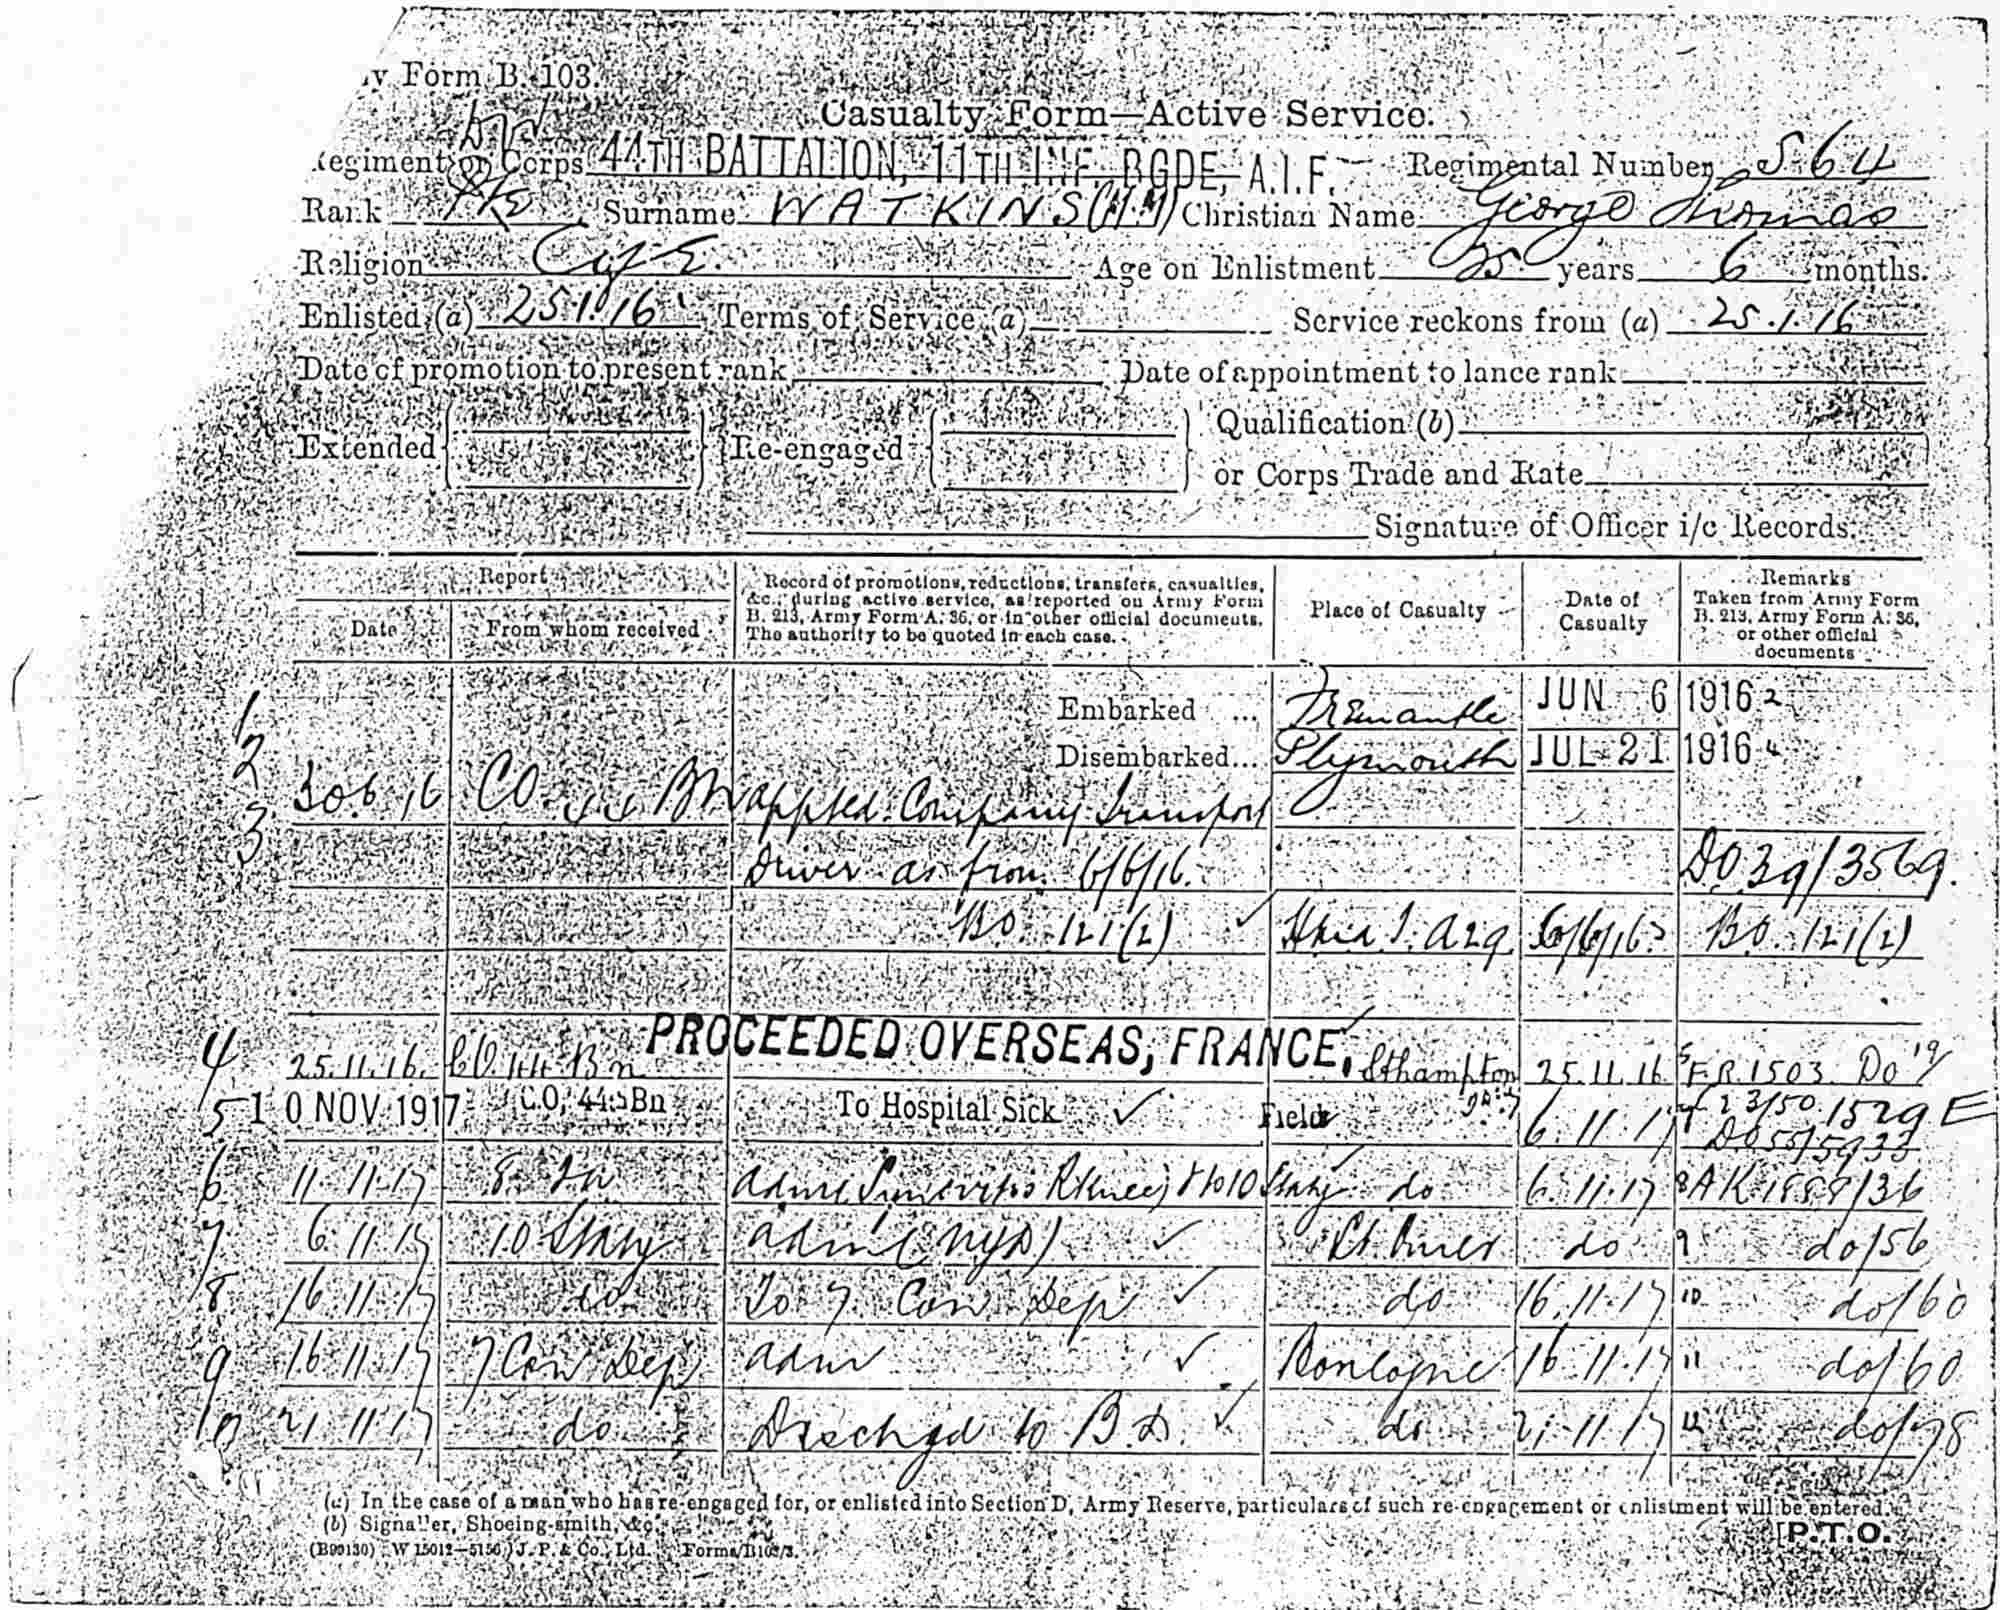 y Form B. 103.
Casualty Form—Active Service.
Regiment or Corps 44TH BATTALION, 11TH INF. BGDE, A.I.F. Regimental Number 564
Rank Pte Surname WATKINS (M.M) Christian Name George Thomas
Religion C of E. Age on Enlistment 25 years 6 months.
Enlisted (a) 25.1.16 Terms of Service (a) Service reckons from (a) 25.1.16
Date of promotion to present rank Date of appointment to lance rank
Extended Re-engaged Qualification (b)
or Corps Trade and Rate
Signature of Officer i/c Records.
Report
Date From whom received
Record of promotions, reductions, transfers, casualties, &c., during active service, as reported on Army Form B. 213, Army Form A. 36, or in other official documents. The authority to be quoted in each case.
Place of Casualty
Date of Casualty
Remarks Taken from Army Form B. 213, Army Form A. 36, or other official documents
1 Embarked ... Fremantle JUN 6 1916 2
2 Disembarked... Plymouth JUL 21 1916 4
3 30.6.16 CO. 44 Bn appted. Company Transport
Driver as from 6/6/16. DO 39/3569.
BO 121(2) ✓ 6/6/16 BO. 121(2)
4 25.11.16. CO. 44 Bn PROCEEDED OVERSEAS, FRANCE, ✓ Sthampton 25.11.16 5 F.R. 1503 DO 19
5 10 NOV 1917 C.O, 44 Bn To Hospital Sick ✓ Field 6.11.17 23/50 1529 E
DO 55/5933
6 11.11.17 adm Synovitis R Knee) to 10 Staty ✓ do 6.11.17 8 AK 1888/36
7 6.11.17 10 Staty adm (NYD) ✓ St Omer do 9 do/56
8 16.11.17 do To 7 Con Dep ✓ do 16.11.17 10 do/60
9 16.11.17 7 Con Dep adm ✓ Boulogne 16.11.17 11 do/60
10 21.11.17 do Dischgd to B.D. ✓ do 21.11.17 12 do/78
(a) In the case of a man who has re-engaged for, or enlisted into Section D, Army Reserve, particulars of such re-engagement or enlistment will be entered.
(b) Signaller, Shoeing-smith, &c.
[P.T.O.
(B99130) W 15012—5156 J. P. & Co., Ltd. Forms/B103/3.